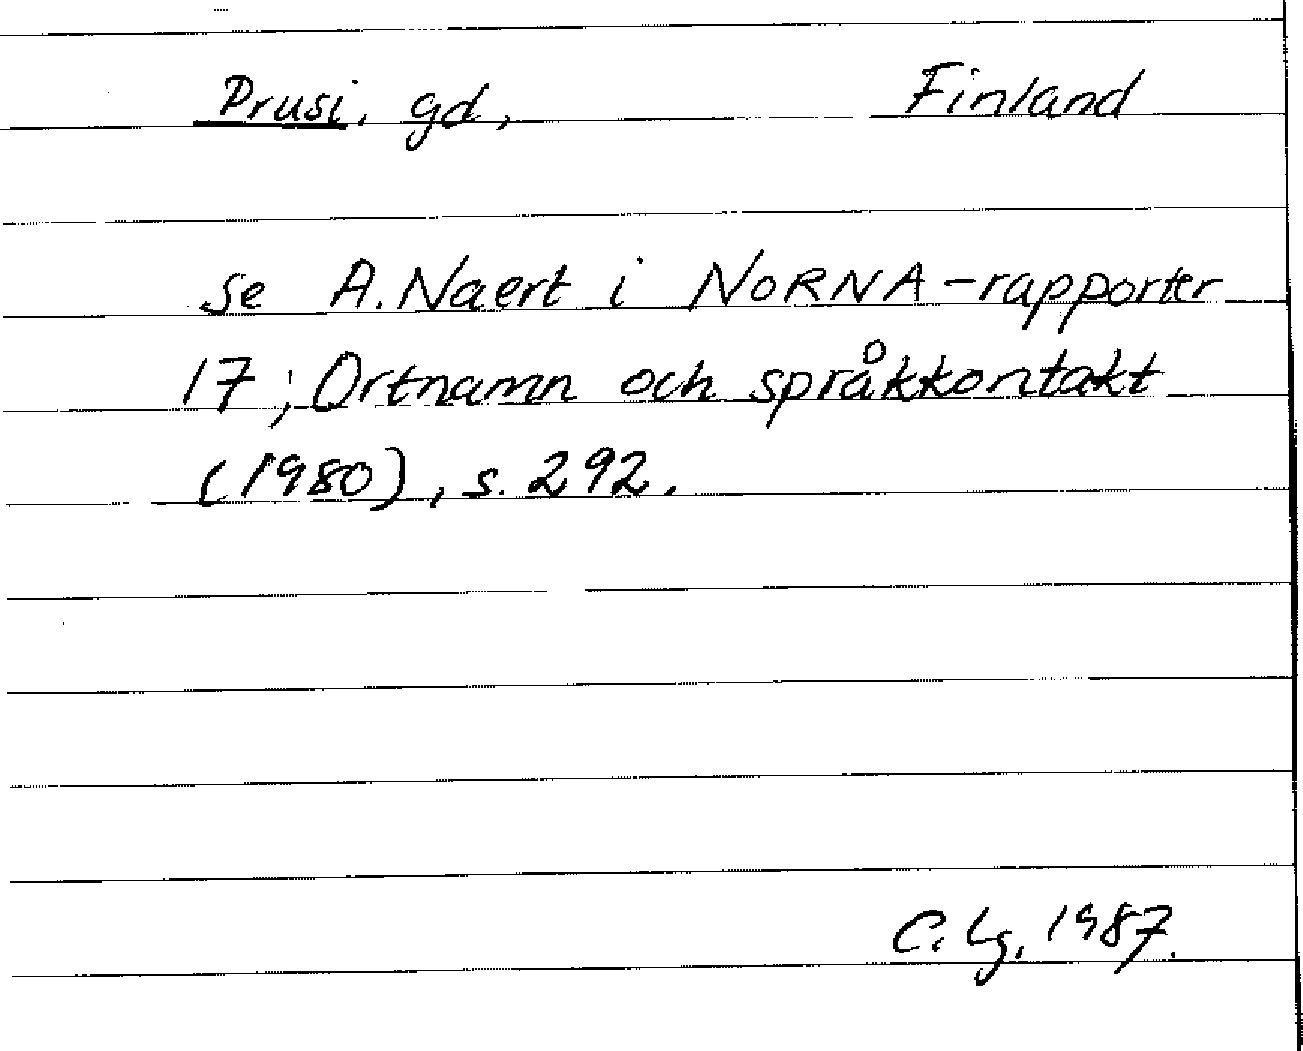 Prusi, gd, Finland
se A. Naert i NORNA-rapporter
17; Ortnamn och språkkontakt
(1980), s. 292.
C. Lg, 1987.